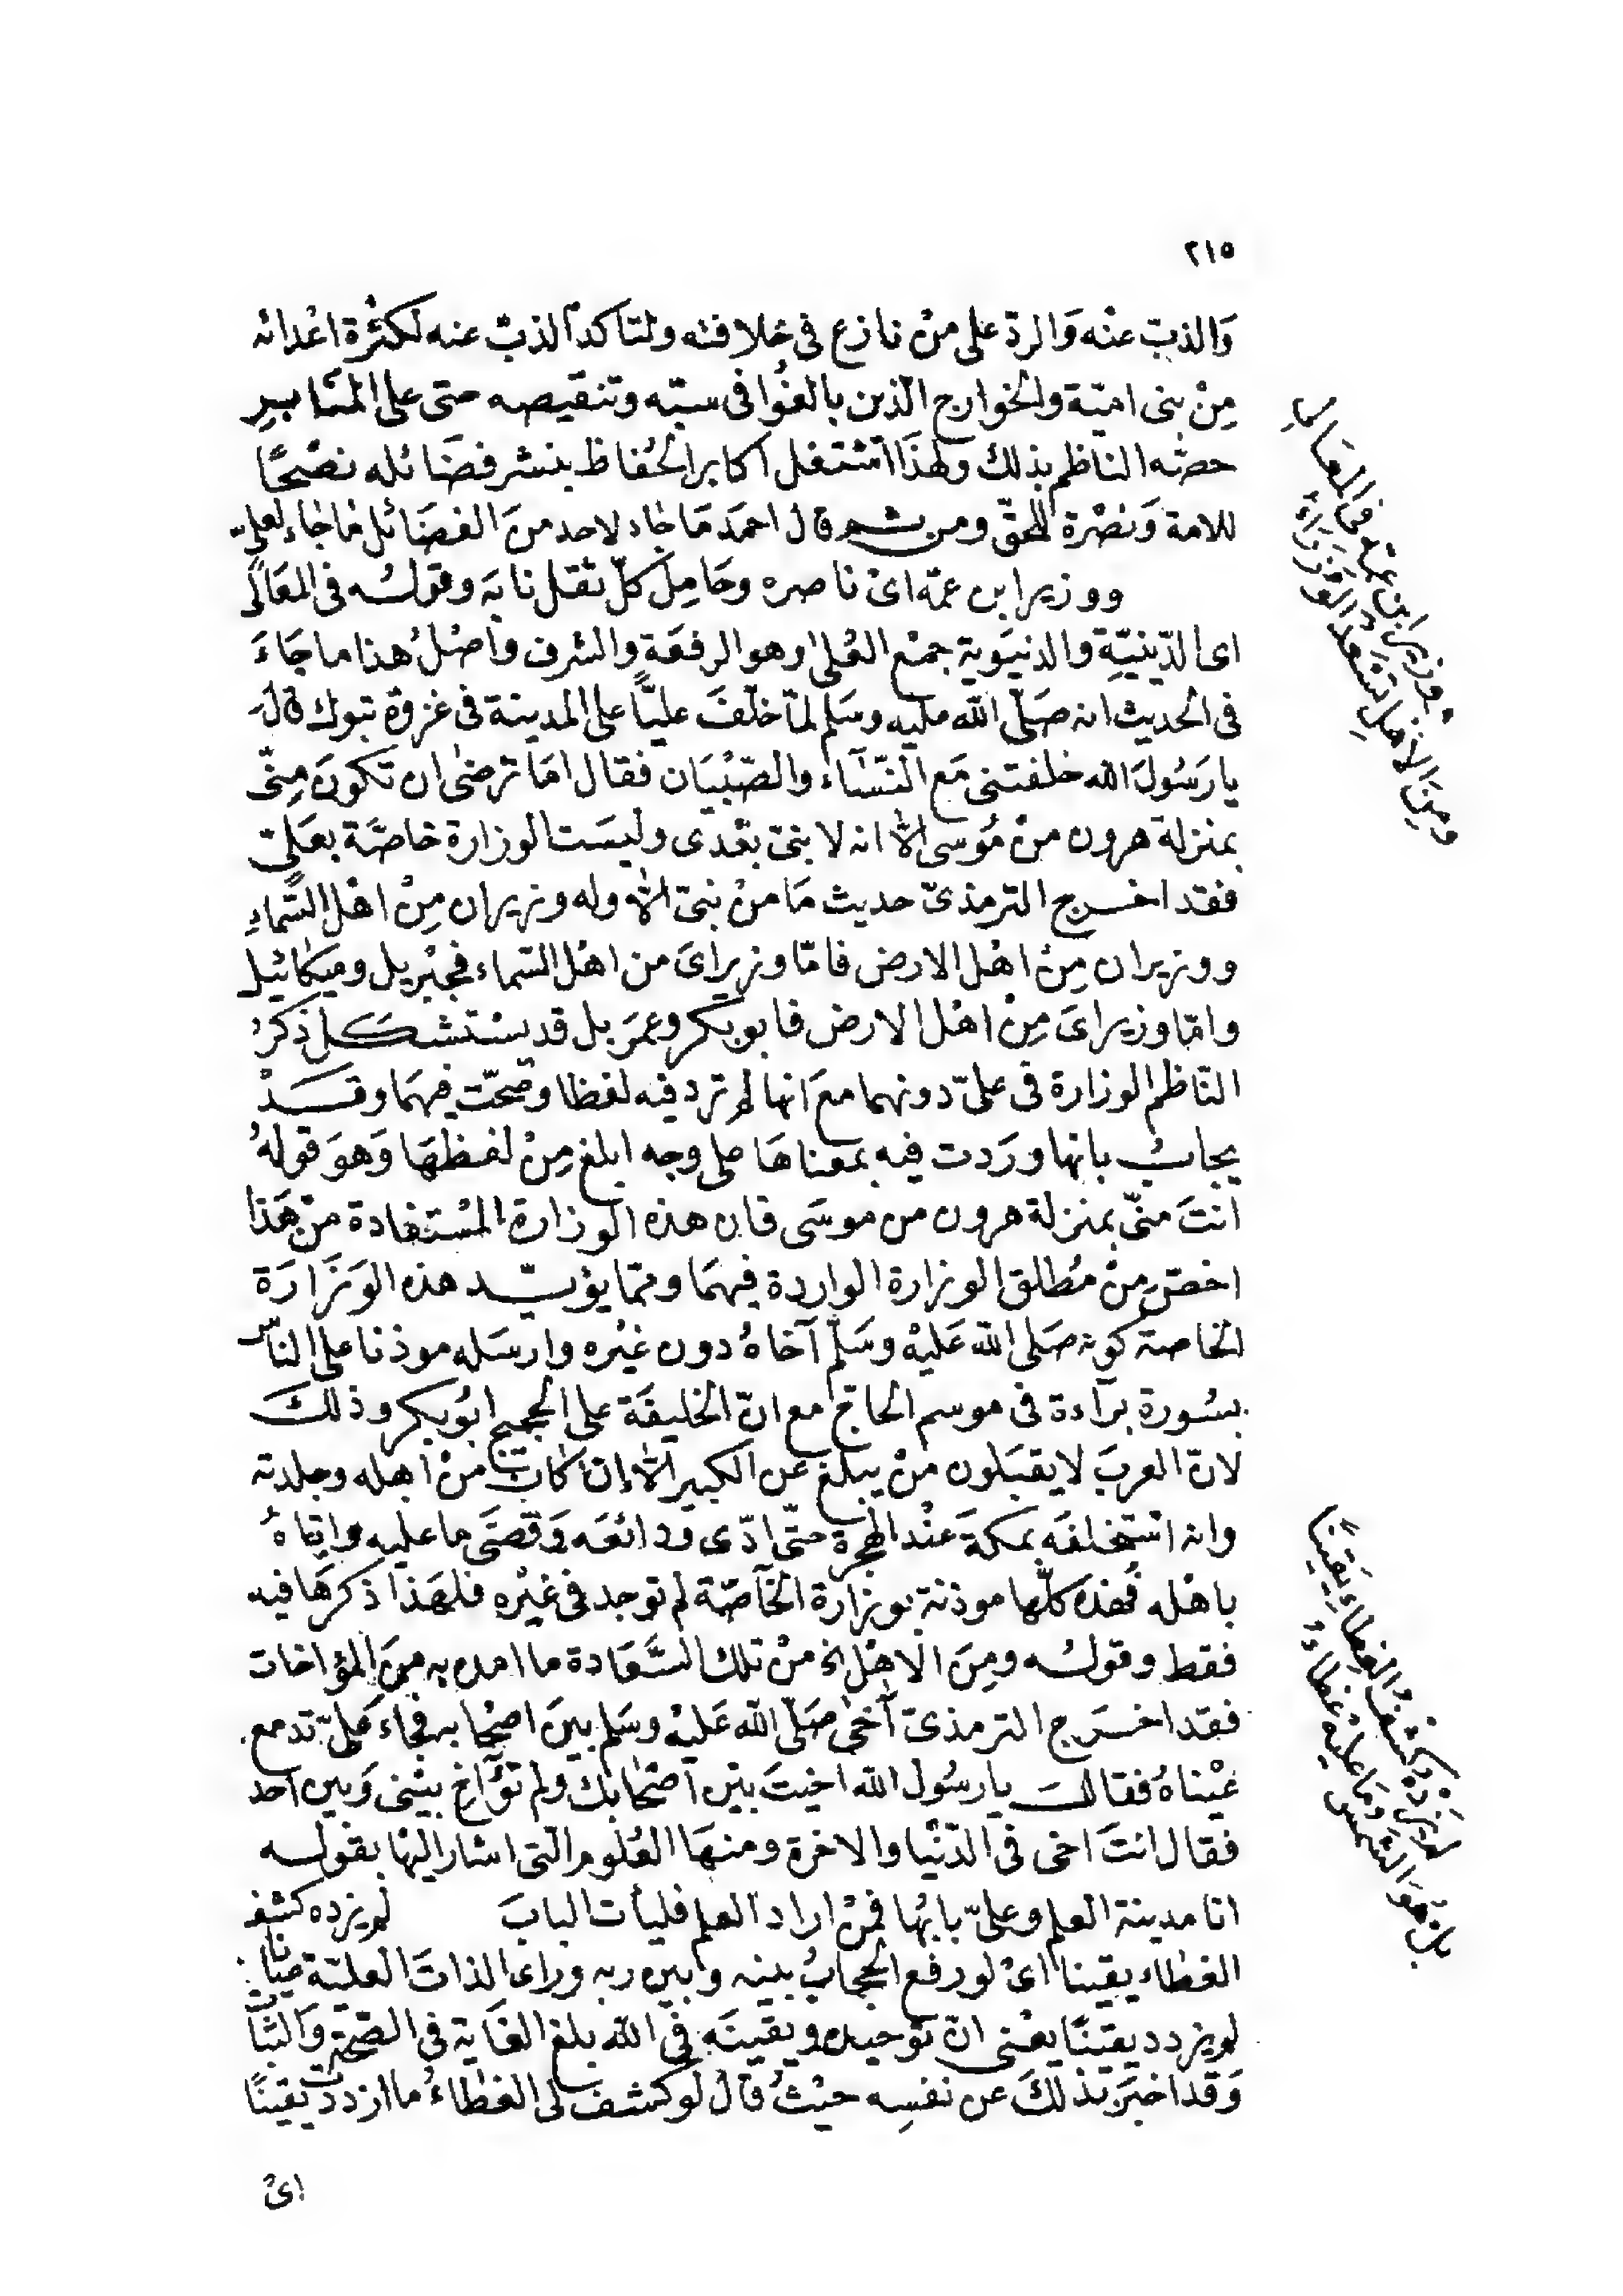 ٢١٥
وَالذبّ عنْه وَالردّ على منْ نازع فى خلافته ولتاكد الذبّ عنه لكثْرة اعْدائه
مِنْ بنى اميّة والخوارج الّذين بالغُوا فى سبّه وتنقيصه حتى على المنَابرِ
حصّه الناظم بذلك ولهذَا اشتغل اكابر الحُفاظ بنشر فضَائله نصْحًا
للامة وَنصْرة للحقّ ومن ثم قال احمَد مَا جاء لاحد منَ الفضَائل ما جَاء لعلىّ
ووزير ابن عمّه اىْ ناصره وحَامِل كلّ ثقل نابَه وقولُه فى المعَالى
اى الدّينيّةِ والدنيَوية جمْع العُلى وهو الرفعَة والشرف واصْلُ هذا ما جَاءَ
فى الحديث انه صَلّى الله عليه وسَلم لمّا خلّفَ عليًّا على المدينة فى غزوة تبوك قالَ
يا رَسُولَ الله خلفتنى مَع النّسَاء والصّبْيَان فقال امَا ترضىٰ ان تكونَ مِنّى
بمنزلة هرون منْ مُوسى الّا انه لا نبىّ بعْدى وليسَت الوزارة خاصَّة بعَلىّ
فقد اخرج الترمذىّ حديث مَا منْ نبىّ الّا وله وزيران مِنْ اهْل السَّماءِ
ووزيران مِنْ اهْل الارض فامّا وزيراىَ من اهْل السّماء فجبْريل وميكائيل
وامّا وزيراىَ مِنْ اهْل الارض فابو بكر وعمَر بل قد يسْتشكل ذكرُ
النّاظم الوزارة فى علىّ دونهما معَ انها لم ترد فيه لفظا وصحّت فيهمَا وقَدْ
يجابُ بانها ورَدت فيه بمعناهَا على وجه ابلغ مِنْ لفظهَا وَهوَ قولهُ
انتَ منّى بمنزلة هرون من موسَى فان هذه الوزارة المسْتفادة منْ هَذا
اخصّ مِنْ مُطلق الوزارة الواردة فيهمَا وممّا يؤيّد هذه الوَزَارَة
الخاصة كونه صَلى الله عَليْه وسَلّم آخاهُ دون غيْره وارسَله موذنا على النّاس
بسُورة برَاءة فى موسم الحاجّ مع انّ الخليفَة على الحجيج ابُو بكر وذلكَ
لانّ العربَ لا يقبَلون منْ يبلّغ عن الكبير الّا ان كانَ منْ اهله وجلدته
وانه اسْتخلفَه بمكةَ عنْد الهجرة حتّى ادّى ودائعَه وَقضَى ما عليه واتاهُ
باهْله فهذه كلّها موذنة بوزارة الخاصّة لم توجد فى غيْره فلهَذا ذكرهَا فيه
فقط وقولُه ومِنَ الاهْل الخ منْ تلك السَّعَادة ما امدّ به منَ المؤاخات
فقد اخرَج الترمذىّ آخىٰ صَلّى الله عَليْه وسَلم بينَ اصْحَابه فجاء عَلىّ تدمع
عيْناهُ فقالَ يا رسُول الله اخيتَ بيْن اصْحَابك ولم تؤَاخِ بيْنى وَبين احد
فقال انتَ اخى فى الدّنْيا والاخرة ومنهَا العُلوم التى اشار اليْها بقوله
انا مدينة العلم وعلىّ بابُها فمنْ اراد العلم فليأت البابَ لم يزده كشف
الغطاء يقينا اىْ لو رفع الحجابُ بينه وبين ربه وراى الذاتَ العليّة عيانا
لم يزدد يقينًا يعْنى انّ توحيده ويقينَه فى الله بلغ الغَاية فى الصّحّة والثبات
وَقد اخبَر بذلكَ عن نفسِه حيْثُ قال لو كشف لى الغطاءُ ما ازددت يقينًا
اىْ
ووزير ابن عمّه فى المعَالى
ومِنَ الاهْل تسْعَدُ الوُزَرَاءُ
لم يَزدْه كشْفُ الغطاءِ يَقينًا
بلْ هُوَ الشمْس مَا عليْه غطَاءُ